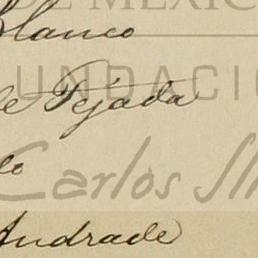 DE MÉXIC
Blanco
FUNDACI
de Tejada
lo
Carlos Sli
Andrade